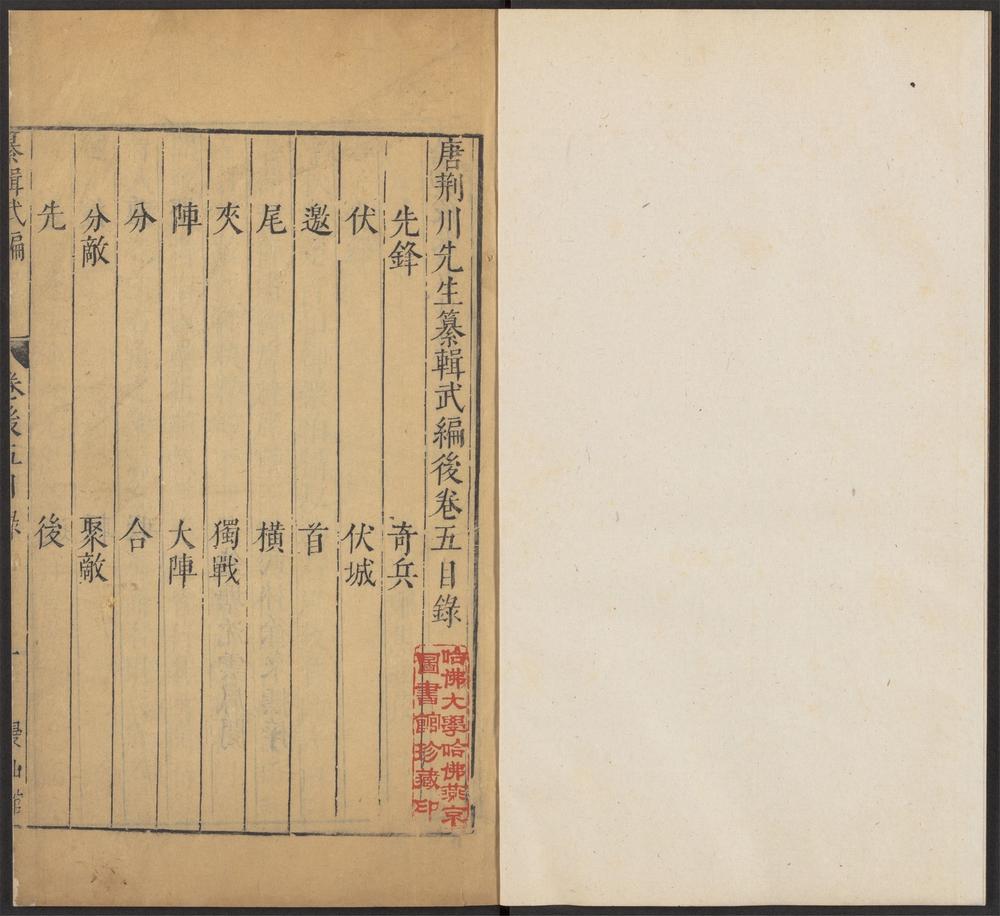 唐荆川先生纂輯武編後卷五目錄
先鋒 奇兵
伏 伏城
邀 首
尾 橫
夾 獨戰
陣 大陣
分 合
分敵 聚敵
先 後
纂輯武編 卷後五目錄 一 曼山館
哈佛大學哈佛燕京
圖書館珍藏印